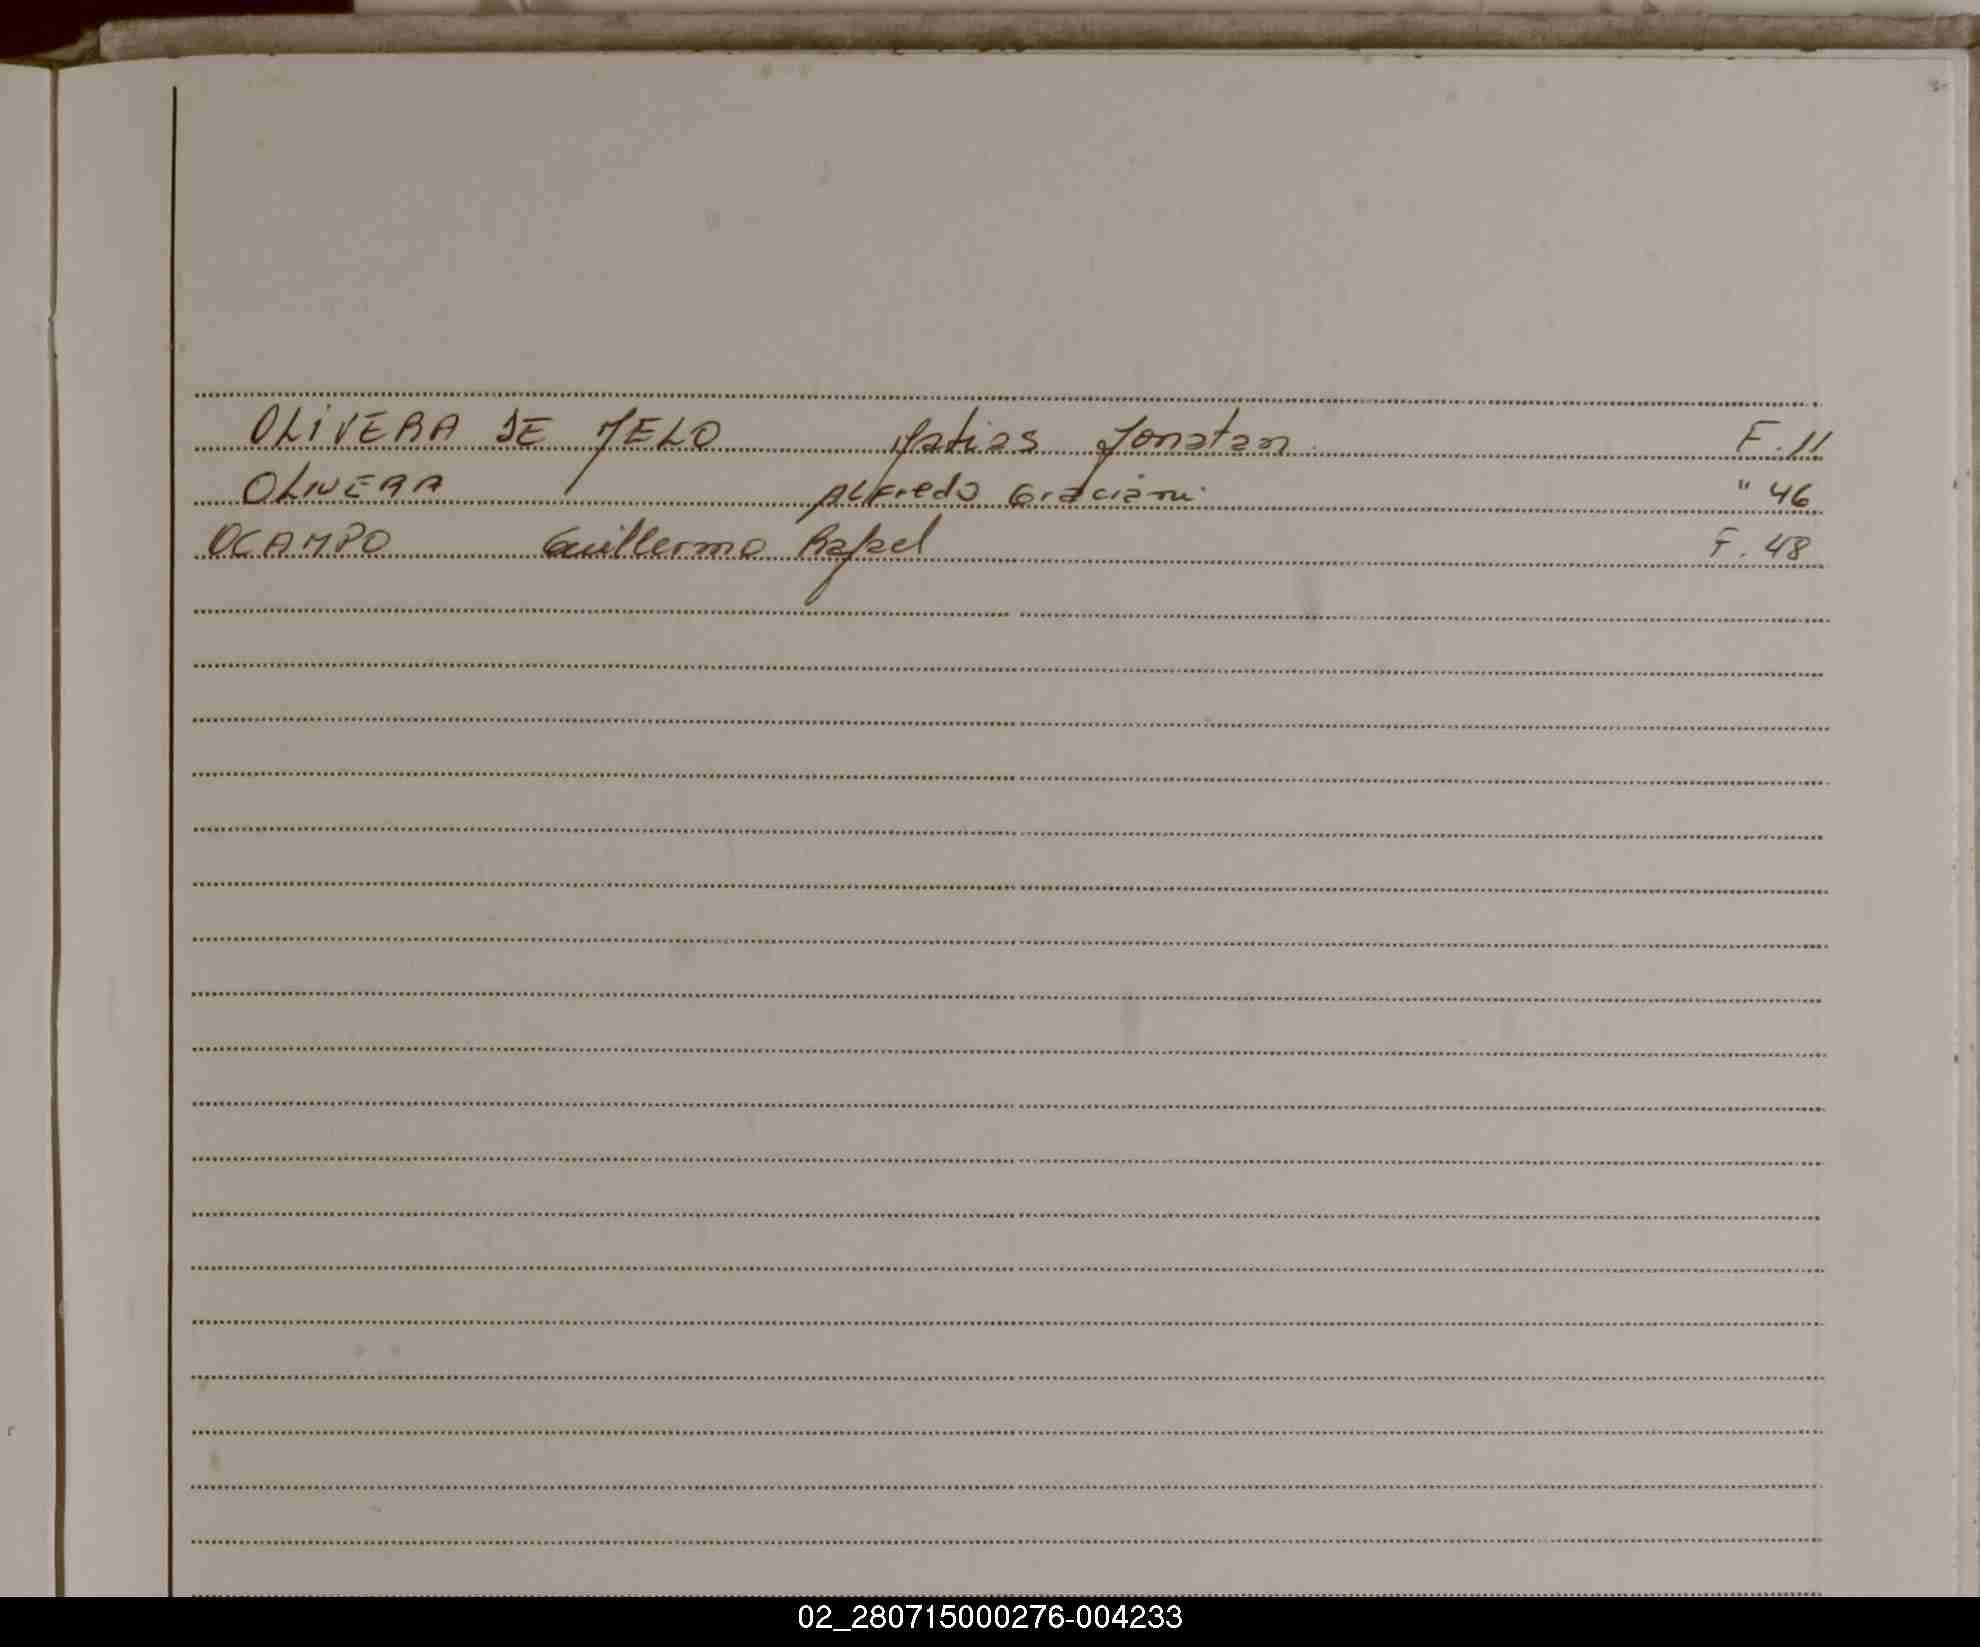 OLIVERA DE MELO Matias Jonatan. F. 11
OLIVERA Alfredo Graciani. " 46
OCAMPO Guillermo Rafael F. 48
02_280715000276-004233